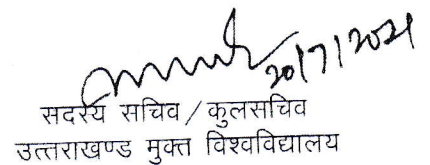 20/7/2021
सदस्य सचिव / कुलसचिव
उत्तराखण्ड मुक्त विश्वविद्यालय